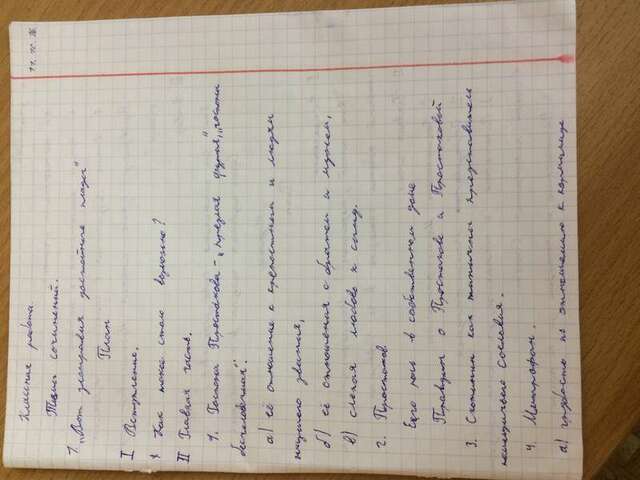 11.10.16.
Классная работа.
Темы сочинений.
1. „Вот злонравия достойные плоды"
План
I Вступление.
Как такое стало возможно?
II Главная часть.
1. Госпожа Простакова - „презлая фурия", „госпожа
бесчеловечная":
а) её отношение к крепостным и людям
низшего звания,
б) её отношения с братом и мужем,
в) слепая любовь к сыну.
2. Простаков
Его роль в собственном доме
Правдин о Простакове и Простаковой
3. Скотинин как типичный представитель
помещичьего сословия.
4. Митрофан.
а) грубость по отношению к кормилице